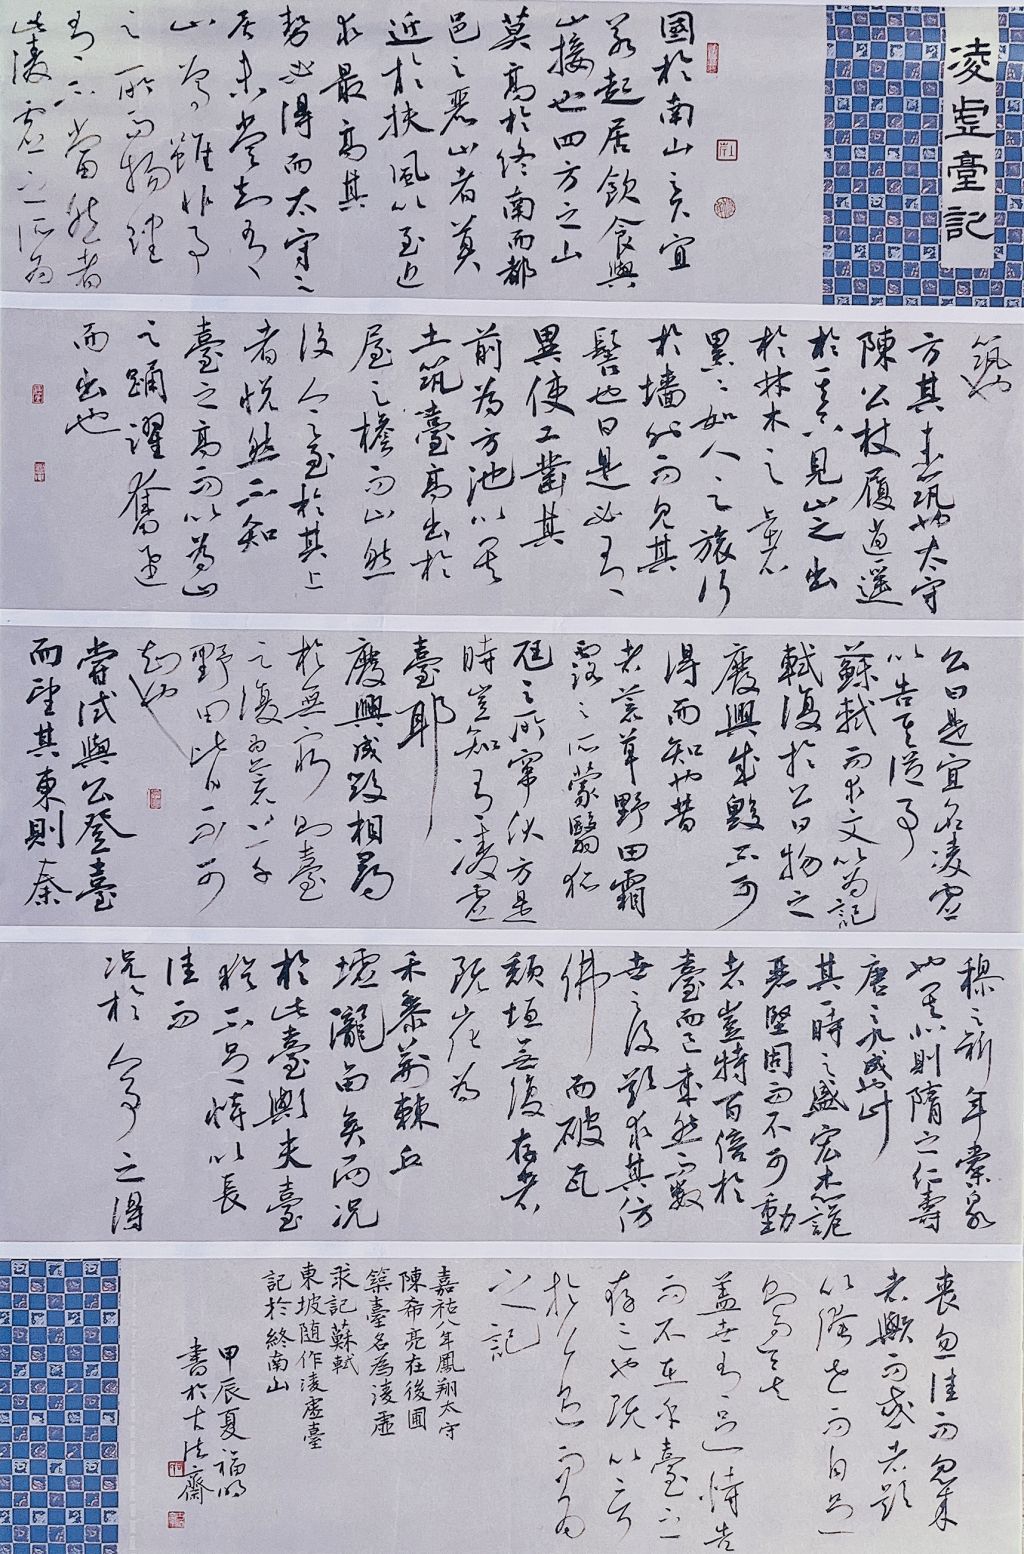 凌虛臺記
國於南山之宜
若起居飲食與
山接也四方之山
莫高於終南而都
邑之麗山者莫
近於扶風以至近
求最高其
勢必得而太守之
居未嘗知有
山焉雖非事
之所而物理
有不當然者
此凌虛之所為
築也
方其未築也太守
陳公杖履逍遙
於其下見山之出
於林木之上者
累々如人之旅行
於墻外而見其
髻也曰是必有
異使工鑿其
前為方池以其
土筑臺高出於
屋之檐而止然
後人之至於其上
者怳然不知
臺之高而以為山
之踊躍奮迅
而出也
公曰是宜名凌虛
以告其從事
蘇軾而求文以為記
軾復於公曰物之
廢興成毀不可
得而知也昔
者荒草野田霜
露之所蒙翳狐
虺之所竄伏方是
時豈知有凌虛
臺耶
廢興成毀相尋
於無窮則臺
之復為荒草
野田皆不可
知也
嘗試與公登臺
而望其東則秦
穆之祈年橐泉
也其北則隋之仁壽
唐之九成也計
其一時之盛宏杰詭
麗堅固而不可動
者豈特百倍於
臺而已哉然而數
世之後欲求其仿
佛而破瓦
頹垣無復存者
既化為
禾黍荊棘丘
墟隴畝矣而況
於此臺歟夫臺
猶不足恃以長
往而
況於人事之得
喪忽往而忽來
者歟而或者欲
以誇世而自足
則過矣
蓋世有足恃者
而不在乎臺之
存亡也既以言
於公退而為
之記
嘉祐八年鳳翔太守
陳希亮在後圃
築臺名為凌虛
求記蘇軾
東坡随作凌虛臺
記於終南山
甲辰夏福明
書於古法齋